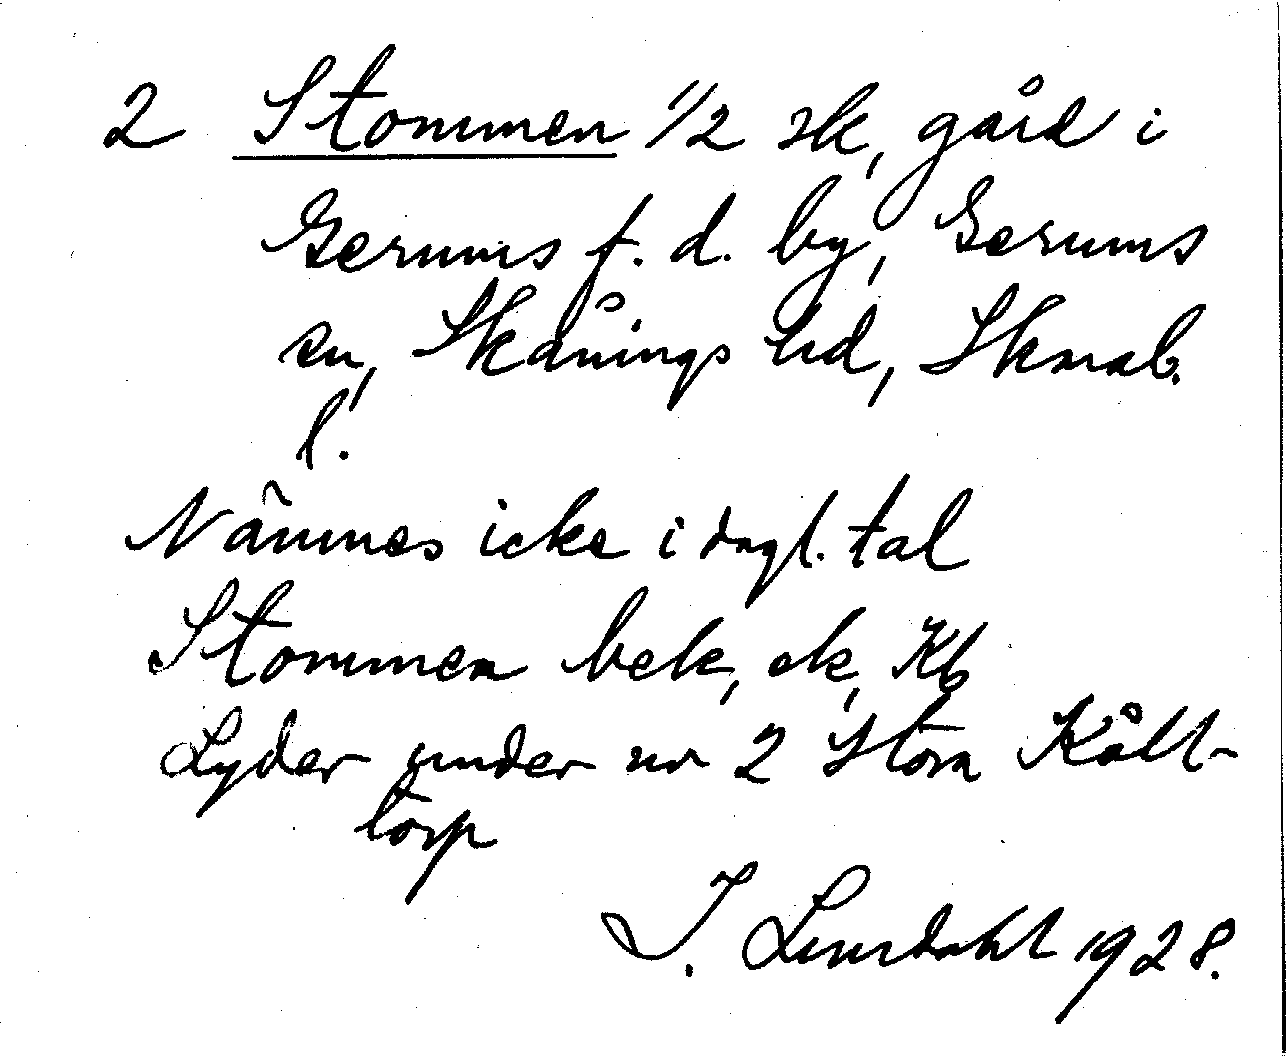 2 Stommen 1/2 sk, gård i
Gerums f. d. by, Gerums
sn, Skånings hd, Skarab.
l.
Nämnes icke i dagl. tal
Stommen bek, ek, Kb
Lyder under nr 2 Stora Kålltorp
J. Lindahl 1928.